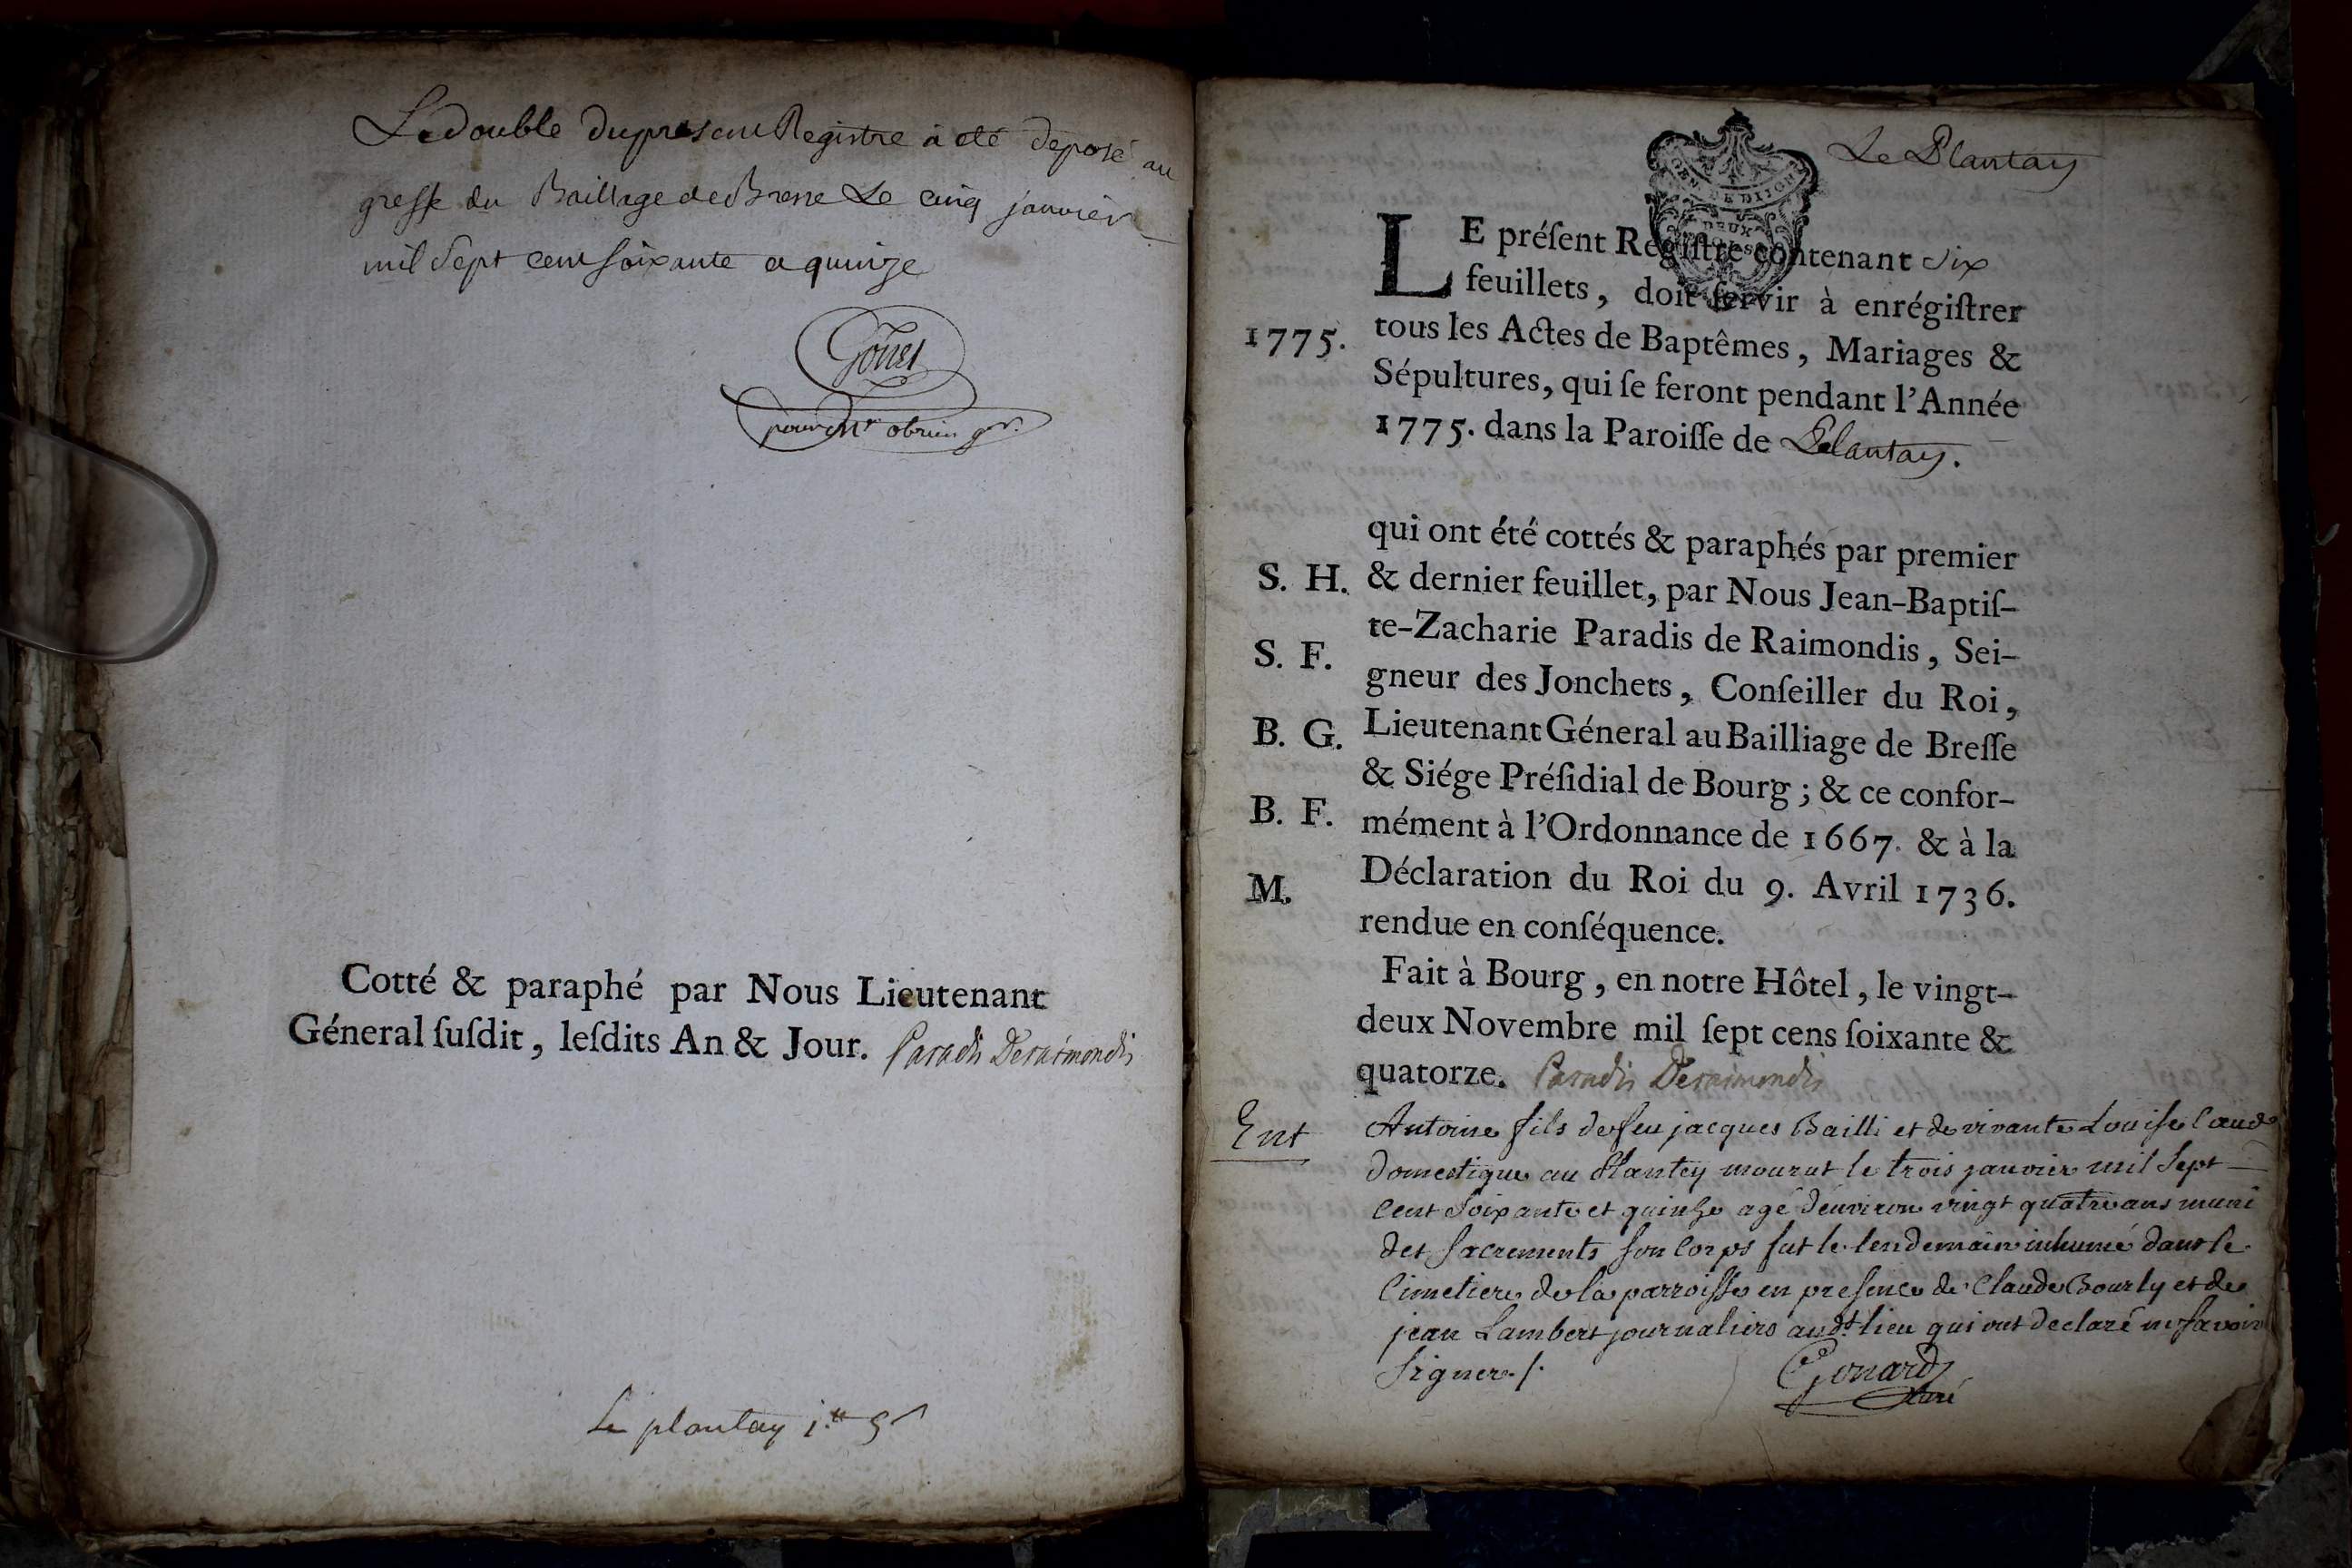 Le double du present Registre à eté deposé au
greffe du Bailliage de Bresse Le cinq janvier
mil Sept cent soixante et quinze
pour Mr obrien
Cotté & paraphé par Nous Lieutenant
Géneral ſuſdit, leſdits An & Jour. Paradis Deraimondis
Le plantay
Le Plantay
GEN DE DIJON
DEUX
LE préſent Regiſtre contenant six
feuillets, doit ſervir à enrégiſtrer
1775. tous les Actes de Baptêmes, Mariages &
Sépultures, qui ſe feront pendant l'Année
1775. dans la Paroiſſe de Leplantay.
qui ont été cottés & paraphés par premier
S. H. & dernier feuillet, par Nous Jean-Baptiſ-
te-Zacharie Paradis de Raimondis, Sei-
S. F. gneur des Jonchets, Conſeiller du Roi,
B. G. Lieutenant Géneral au Bailliage de Breſſe
& Siége Préſidial de Bourg ; & ce confor-
B. F. mément à l'Ordonnance de 1667. & à la
M. Déclaration du Roi du 9. Avril 1736.
rendue en conſéquence.
Fait à Bourg, en notre Hôtel, le vingt-
deux Novembre mil ſept cens ſoixante &
quatorze. Paradis Deraimondis
Ent Antoine fils de feu jacques Bailli et de vivante Louise
domestique au Plantey mourut le trois janvier mil Sept
cent Soixante et quinze agé d'environ vingt quatre ans muni
des sacrements son corps fut le lendemain inhumé dans le
cimetiere de la parroisse en presence de Claude Bourly et de
jean Lambert journaliers audt lieu qui ont declaré ne savoir
signer ./.
Gonard
curé